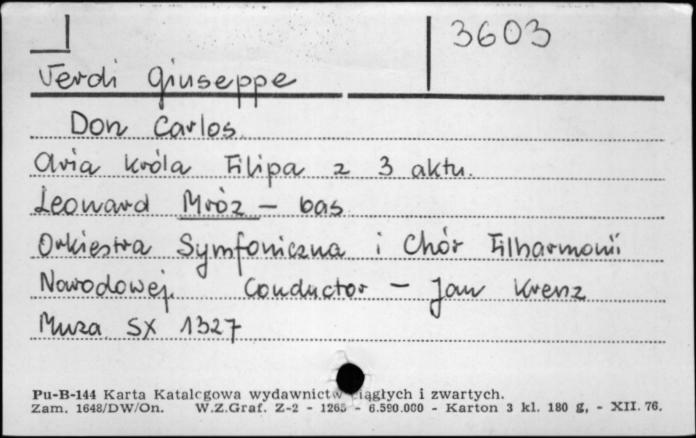 3603
Verdi Giuseppe
Don Carlos
Aria króla Filipa z 3 aktu.
Leonard Mróz – bas
Orkiestra Symfoniczna i Chór Filharmonii
Narodowej. Conductor – Jan Krenz
Muza SX 1327
Pu-B-144 Karta Katalogowa wydawnictw ciągłych i zwartych.
Zam. 1648/DW/On. W.Z.Graf. Z-2 - 1265 - 6.590.000 - Karton 3 kl. 180 g, - XII. 76.